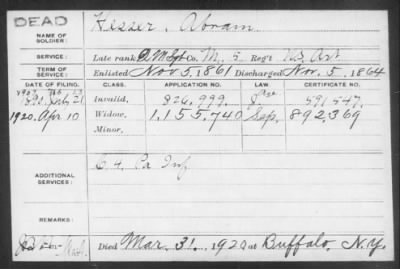 DEAD
NAME OF SOLDIER: Kesser, Abram
SERVICE: Late rank Q M Sgt Co. M, 5 Reg't U.S. Art
TERM OF SERVICE: Enlisted Nov 5, 1861 Discharged Nov. 5, 1864
DATE OF FILING. CLASS. APPLICATION NO. LAW. CERTIFICATE NO.
1890, July 21 Invalid. 826,999. 591547.
1920, Apr 10 Widow. 1,155,740 Sep. 892,369
Minor.
ADDITIONAL SERVICES: Pa Inf
REMARKS:
Died Mar. 31, 1920 at Buffalo, N.Y.